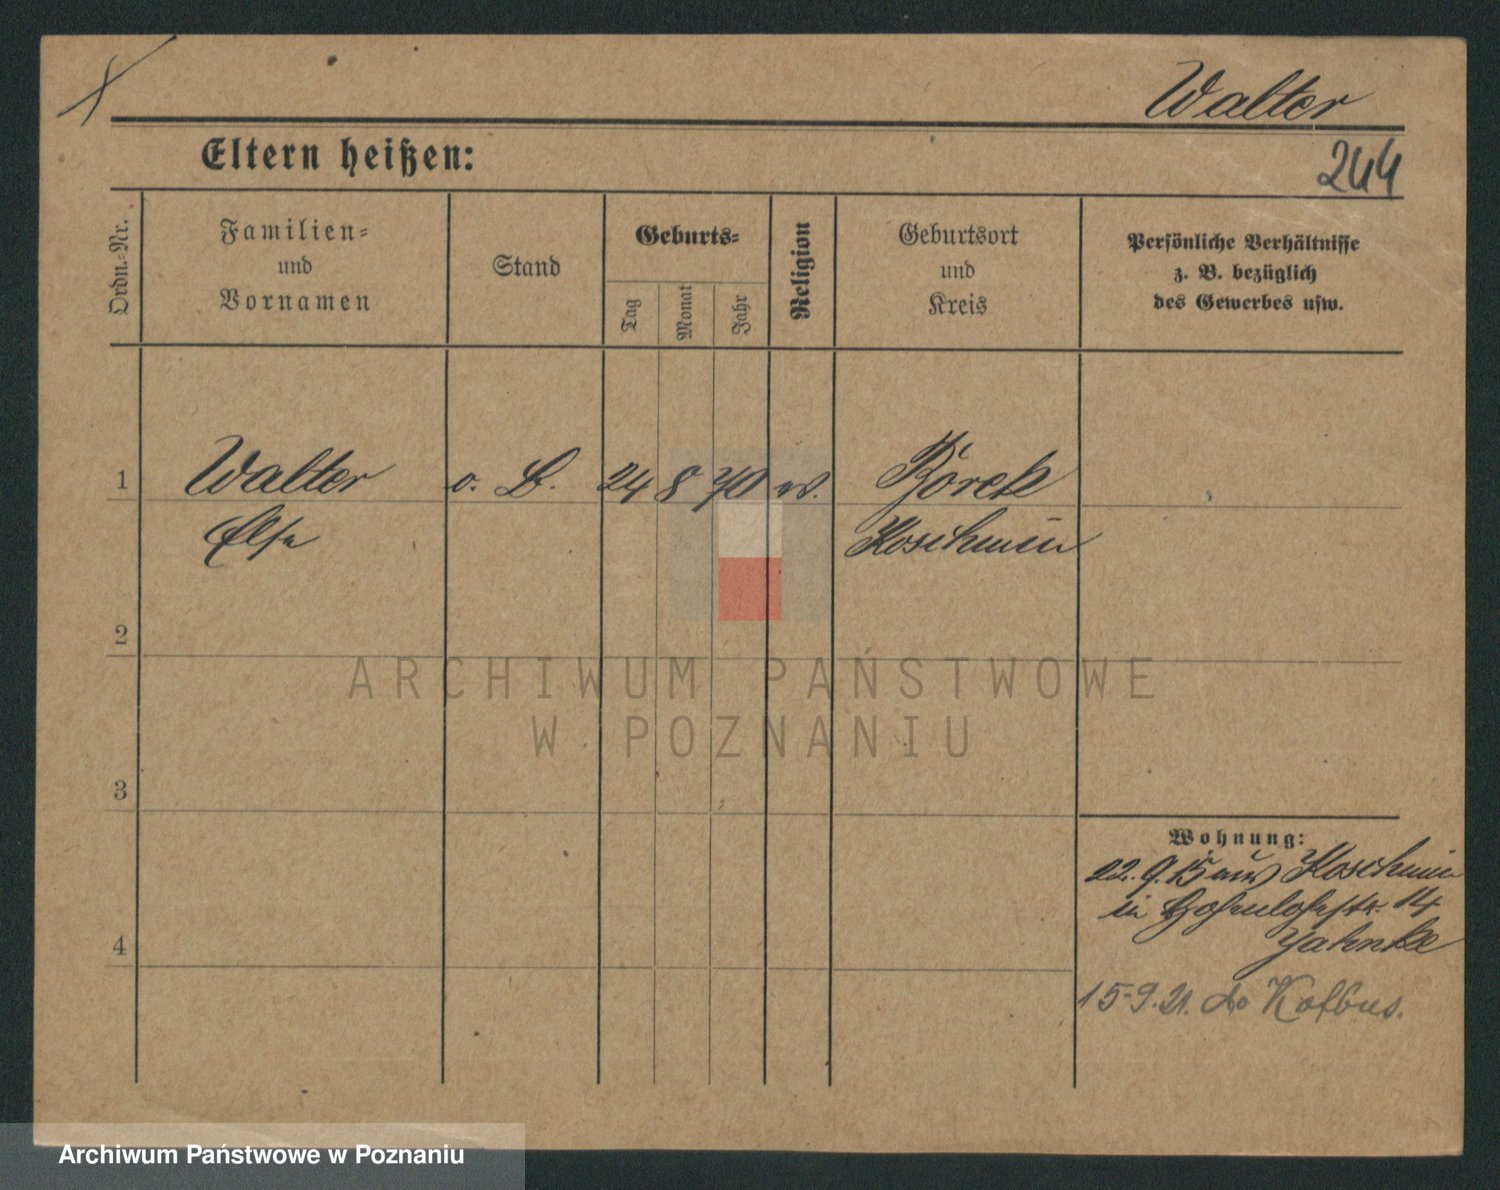 Walter
Eltern heißen:
244
Ordn.=Nr.
Familien=
und
Vornamen
Stand
Geburts=
Tag
Monat
Jahr
Religion
Geburtsort
und
Kreis
Persönliche Verhältnisse
z. B. bezüglich
des Gewerbes usw.
1
Walter o. B. 24 8 70 ev. Borek
Else Koschmin
2
ARCHIWUM PAŃSTWOWE
W POZNANIU
3
Wohnung:
22. 9. 15 aus Koschmin
in Hohenlohestr. 14
Jahnke
4
15-9.21. do Kotbus.
Archiwum Państwowe w Poznaniu